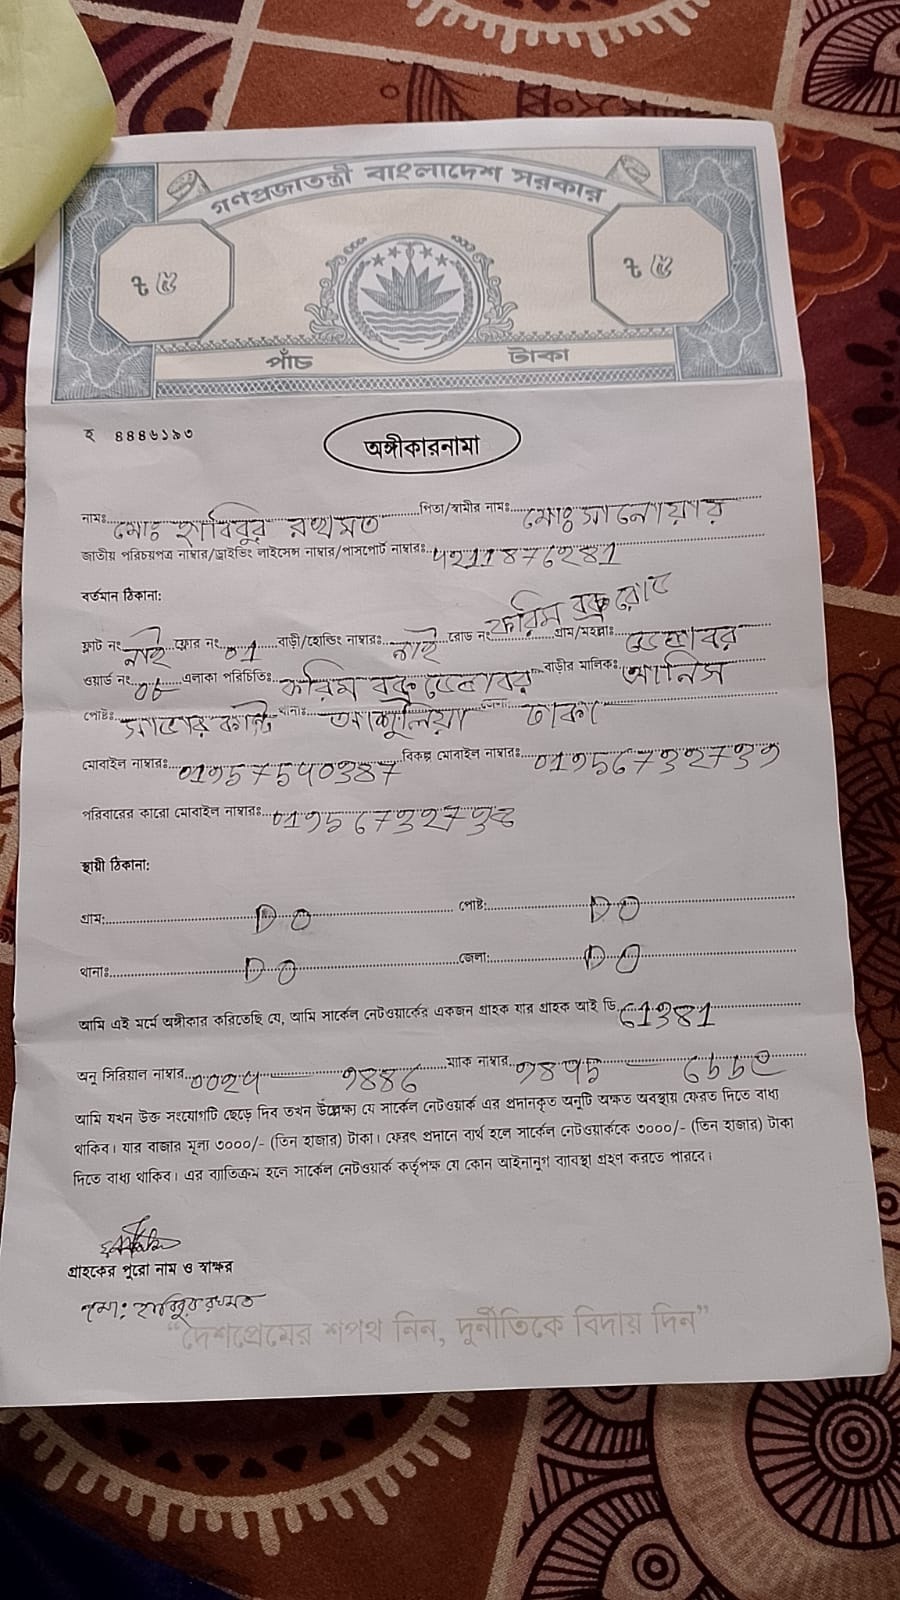 গণপ্রজাতন্ত্রী বাংলাদেশ সরকার
৳ ৫ ৳ ৫
পাঁচ টাকা
হ ৪৪৪৬১৯৩
অঙ্গীকারনামা
নামঃ মোঃ হাবিবুর রহমত পিতা/স্বামীর নামঃ মোঃ সানোয়ার
জাতীয় পরিচয়পত্র নাম্বার/ড্রাইভিং লাইসেন্স নাম্বার/পাসপোর্ট নাম্বারঃ
বর্তমান ঠিকানা:
ফ্লাট নং নাই ফ্লোর নং 01 বাড়ী/হোল্ডিং নাম্বারঃ নাই রোড নং করিম বক্স রোড গ্রাম/মহল্লাঃ ডেন্ডাবর
ওয়ার্ড নং এলাকা পরিচিতিঃ করিম বক্স ডেন্ডাবর বাড়ীর মালিকঃ আনিস
পোষ্টঃ সাভার ক্যান্ট থানাঃ আশুলিয়া জেলা ঢাকা
মোবাইল নাম্বারঃ বিকল্প মোবাইল নাম্বারঃ
পরিবারের কারো মোবাইল নাম্বারঃ
স্থায়ী ঠিকানা:
গ্রাম: DO পোষ্ট: DO
থানাঃ DO জেলা: DO
আমি এই মর্মে অঙ্গীকার করিতেছি যে, আমি সার্কেল নেটওয়ার্কের একজন গ্রাহক যার গ্রাহক আই ডি
অনু সিরিয়াল নাম্বার ম্যাক নাম্বার
আমি যখন উক্ত সংযোগটি ছেড়ে দিব তখন উল্লেক্ষ্য যে সার্কেল নেটওয়ার্ক এর প্রদানকৃত অনুটি অক্ষত অবস্থায় ফেরত দিতে বাধ্য
থাকিব। যার বাজার মূল্য ৩০০০/- (তিন হাজার) টাকা। ফেরৎ প্রদানে ব্যর্থ হলে সার্কেল নেটওয়ার্ককে ৩০০০/- (তিন হাজার) টাকা
দিতে বাধ্য থাকিব। এর ব্যতিক্রম হলে সার্কেল নেটওয়ার্ক কর্তৃপক্ষ যে কোন আইনানুগ ব্যাবস্থা গ্রহণ করতে পারবে।
গ্রাহকের পুরো নাম ও স্বাক্ষর
মোঃ হাবিবুর রহমত
“দেশপ্রেমের শপথ নিন, দুর্নীতিকে বিদায় দিন”